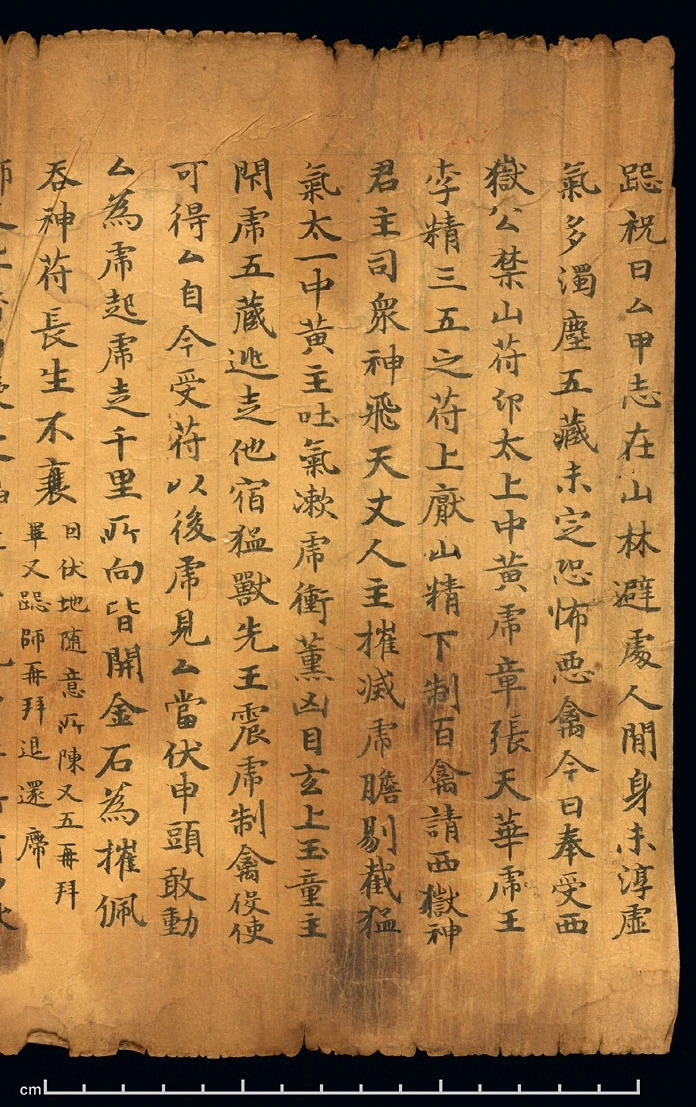 跽祝曰厶甲志在山林避處人間身未淳虛
氣多濁塵五藏未定恐怖惡禽今日奉受西
嶽公禁山苻卬太上中黃虎章張天華虎王
李精三五之苻上厭山精下制百禽請西嶽神
君主司衆神飛天丈人主摧滅虎膽剔截猛
氣太一中黃主吐氣漱虎衝薰凶目玄上玉童主
閇虎五藏逃走他宿猛獸先王震虎制禽伇使
可得厶自今受苻以後虎見厶當伏申頭敢動
厶為虎起虎走千里所向皆開金石為摧佩
吞神苻長生不襄
因伏地随意所陳又五再拜
畢又跽師再拜退還席
cm